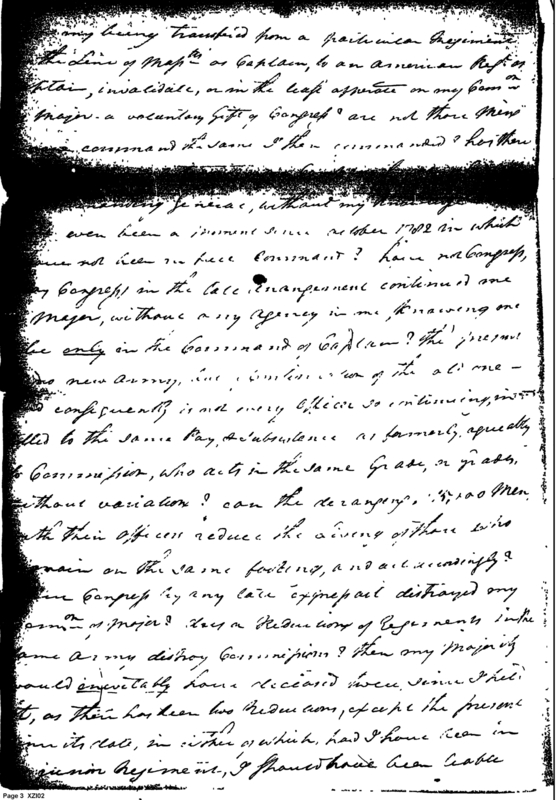 my being transferred from a particular Regiment
the Line of Massts as Captain, to an American Regt as
ptain, invalidate, or in the least opperate on my Comon
Major - a voluntary Gift of Congress? are not those Mens
command the same I then commanded? has there
General, without my knowledge
even been a moment since october 1782 in which
have not been in full Command? have not Congress,
by Congress, in the late arrangement continued me
Major, without any agency in me, knowing me
be only in the Command of Captain? The present
no new Army, but a Continuation of the old one -
d consequently is not every Officer so continuing, inti
tled to the same Pay, & subsistence as formerly, agreeably
Commission, who acts in the same Grade, or grades,
ithout variation? can the deranging 3500 Men
with their Officers reduce the giving of those who
main on the same footing, and act accordingly?
Congress by any late express act distroyed my
omon of Major? does a Reduction of Regiments in the
ame Army destroy Commissions? then my Majority
would inevitably have deceased twice, since I held
it, as there has been two Reductions, except the present
its date, in either of which had I have been in
junior Regiment, I should have been liable
Page 3 XZI02